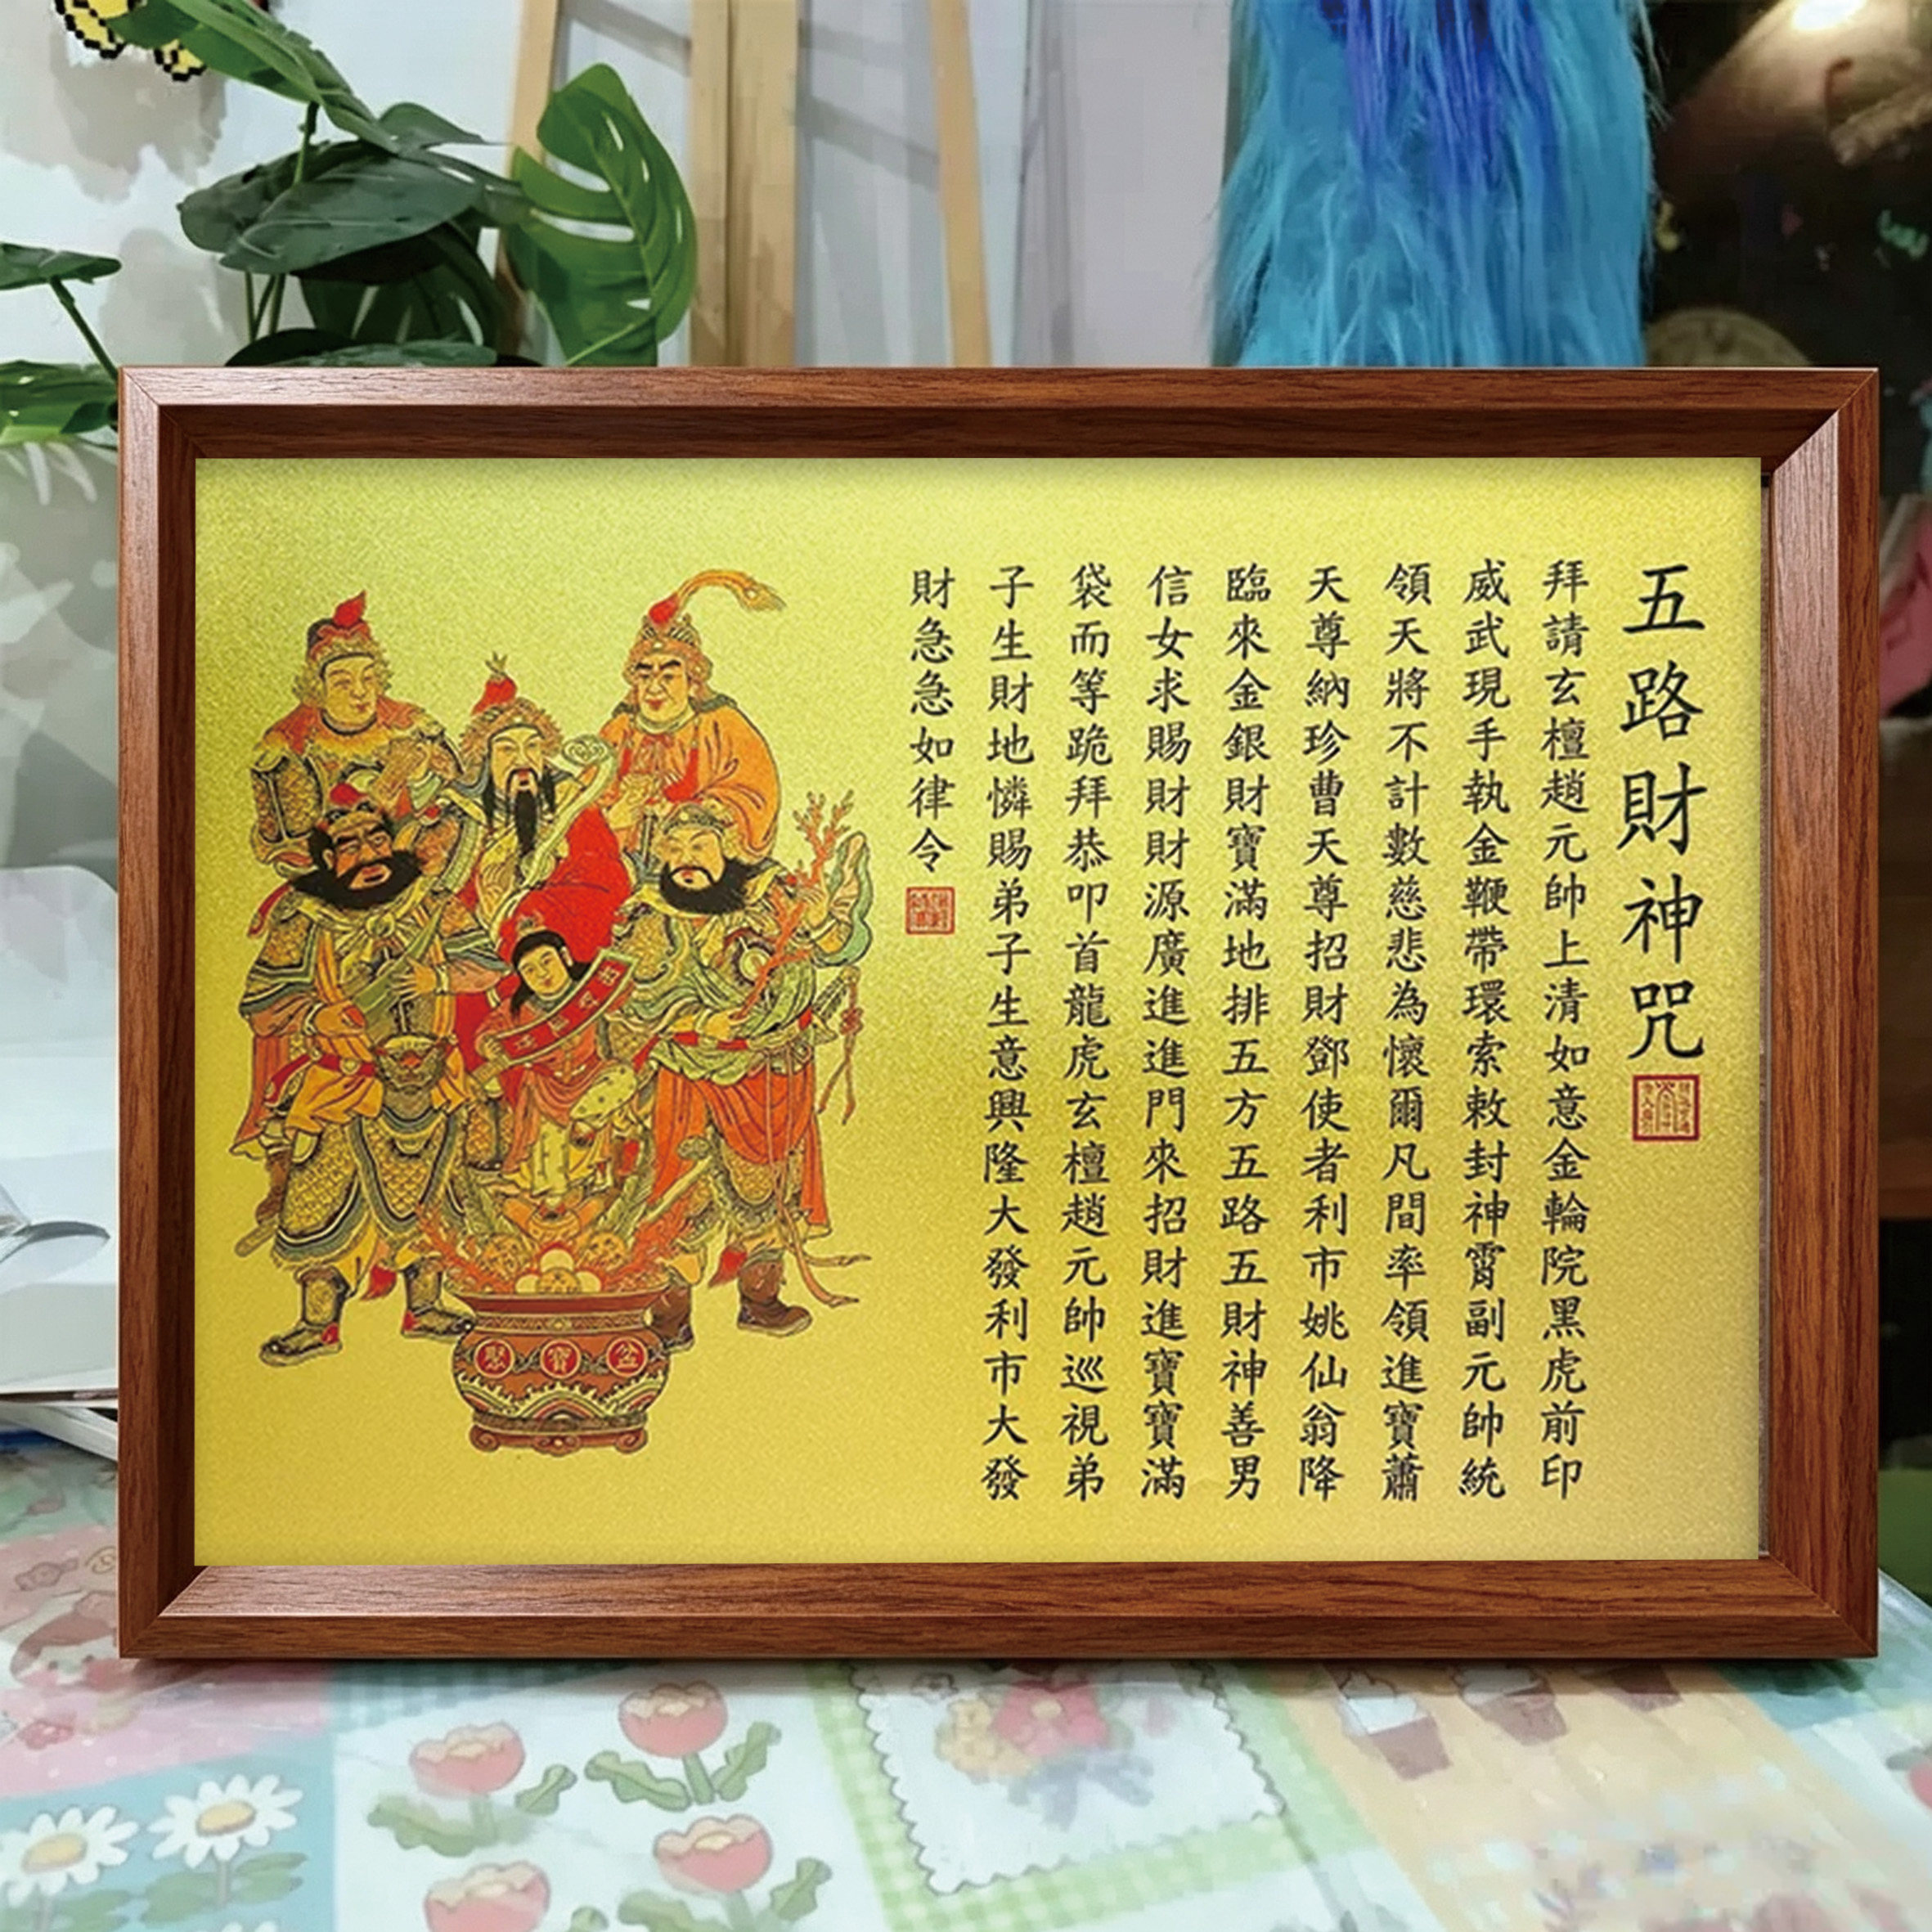 五路財神咒
拜請玄檀趙元帥上清如意金輪院黑虎前印
威武現手執金鞭帶環索敕封神霄副元帥統
領天將不計數慈悲為懷爾凡間率領進寶蕭
天尊納珍曹天尊招財鄧使者利市姚仙翁降
臨來金銀財寶滿地排五方五路五財神善男
信女求賜財財源廣進進門來招財進寶寶滿
袋而等跪拜恭叩首龍虎玄檀趙元帥巡視弟
子生財地憐賜弟子生意興隆大發利市大發
財急急如律令
聚寶盆